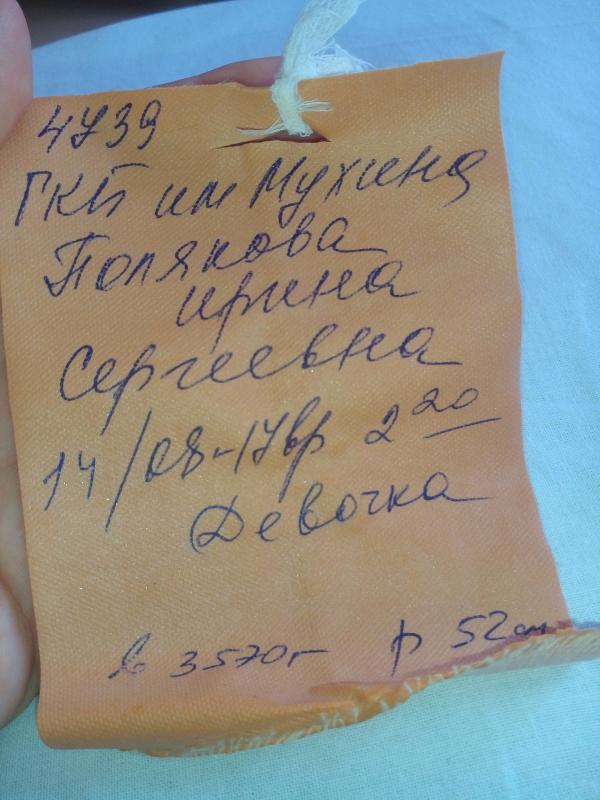 4739
ГКБ им Мухина
Полякова
Ирина
Сергеевна
14/08-17 вр 2 20
Девочка
в 3570 г р 52 см